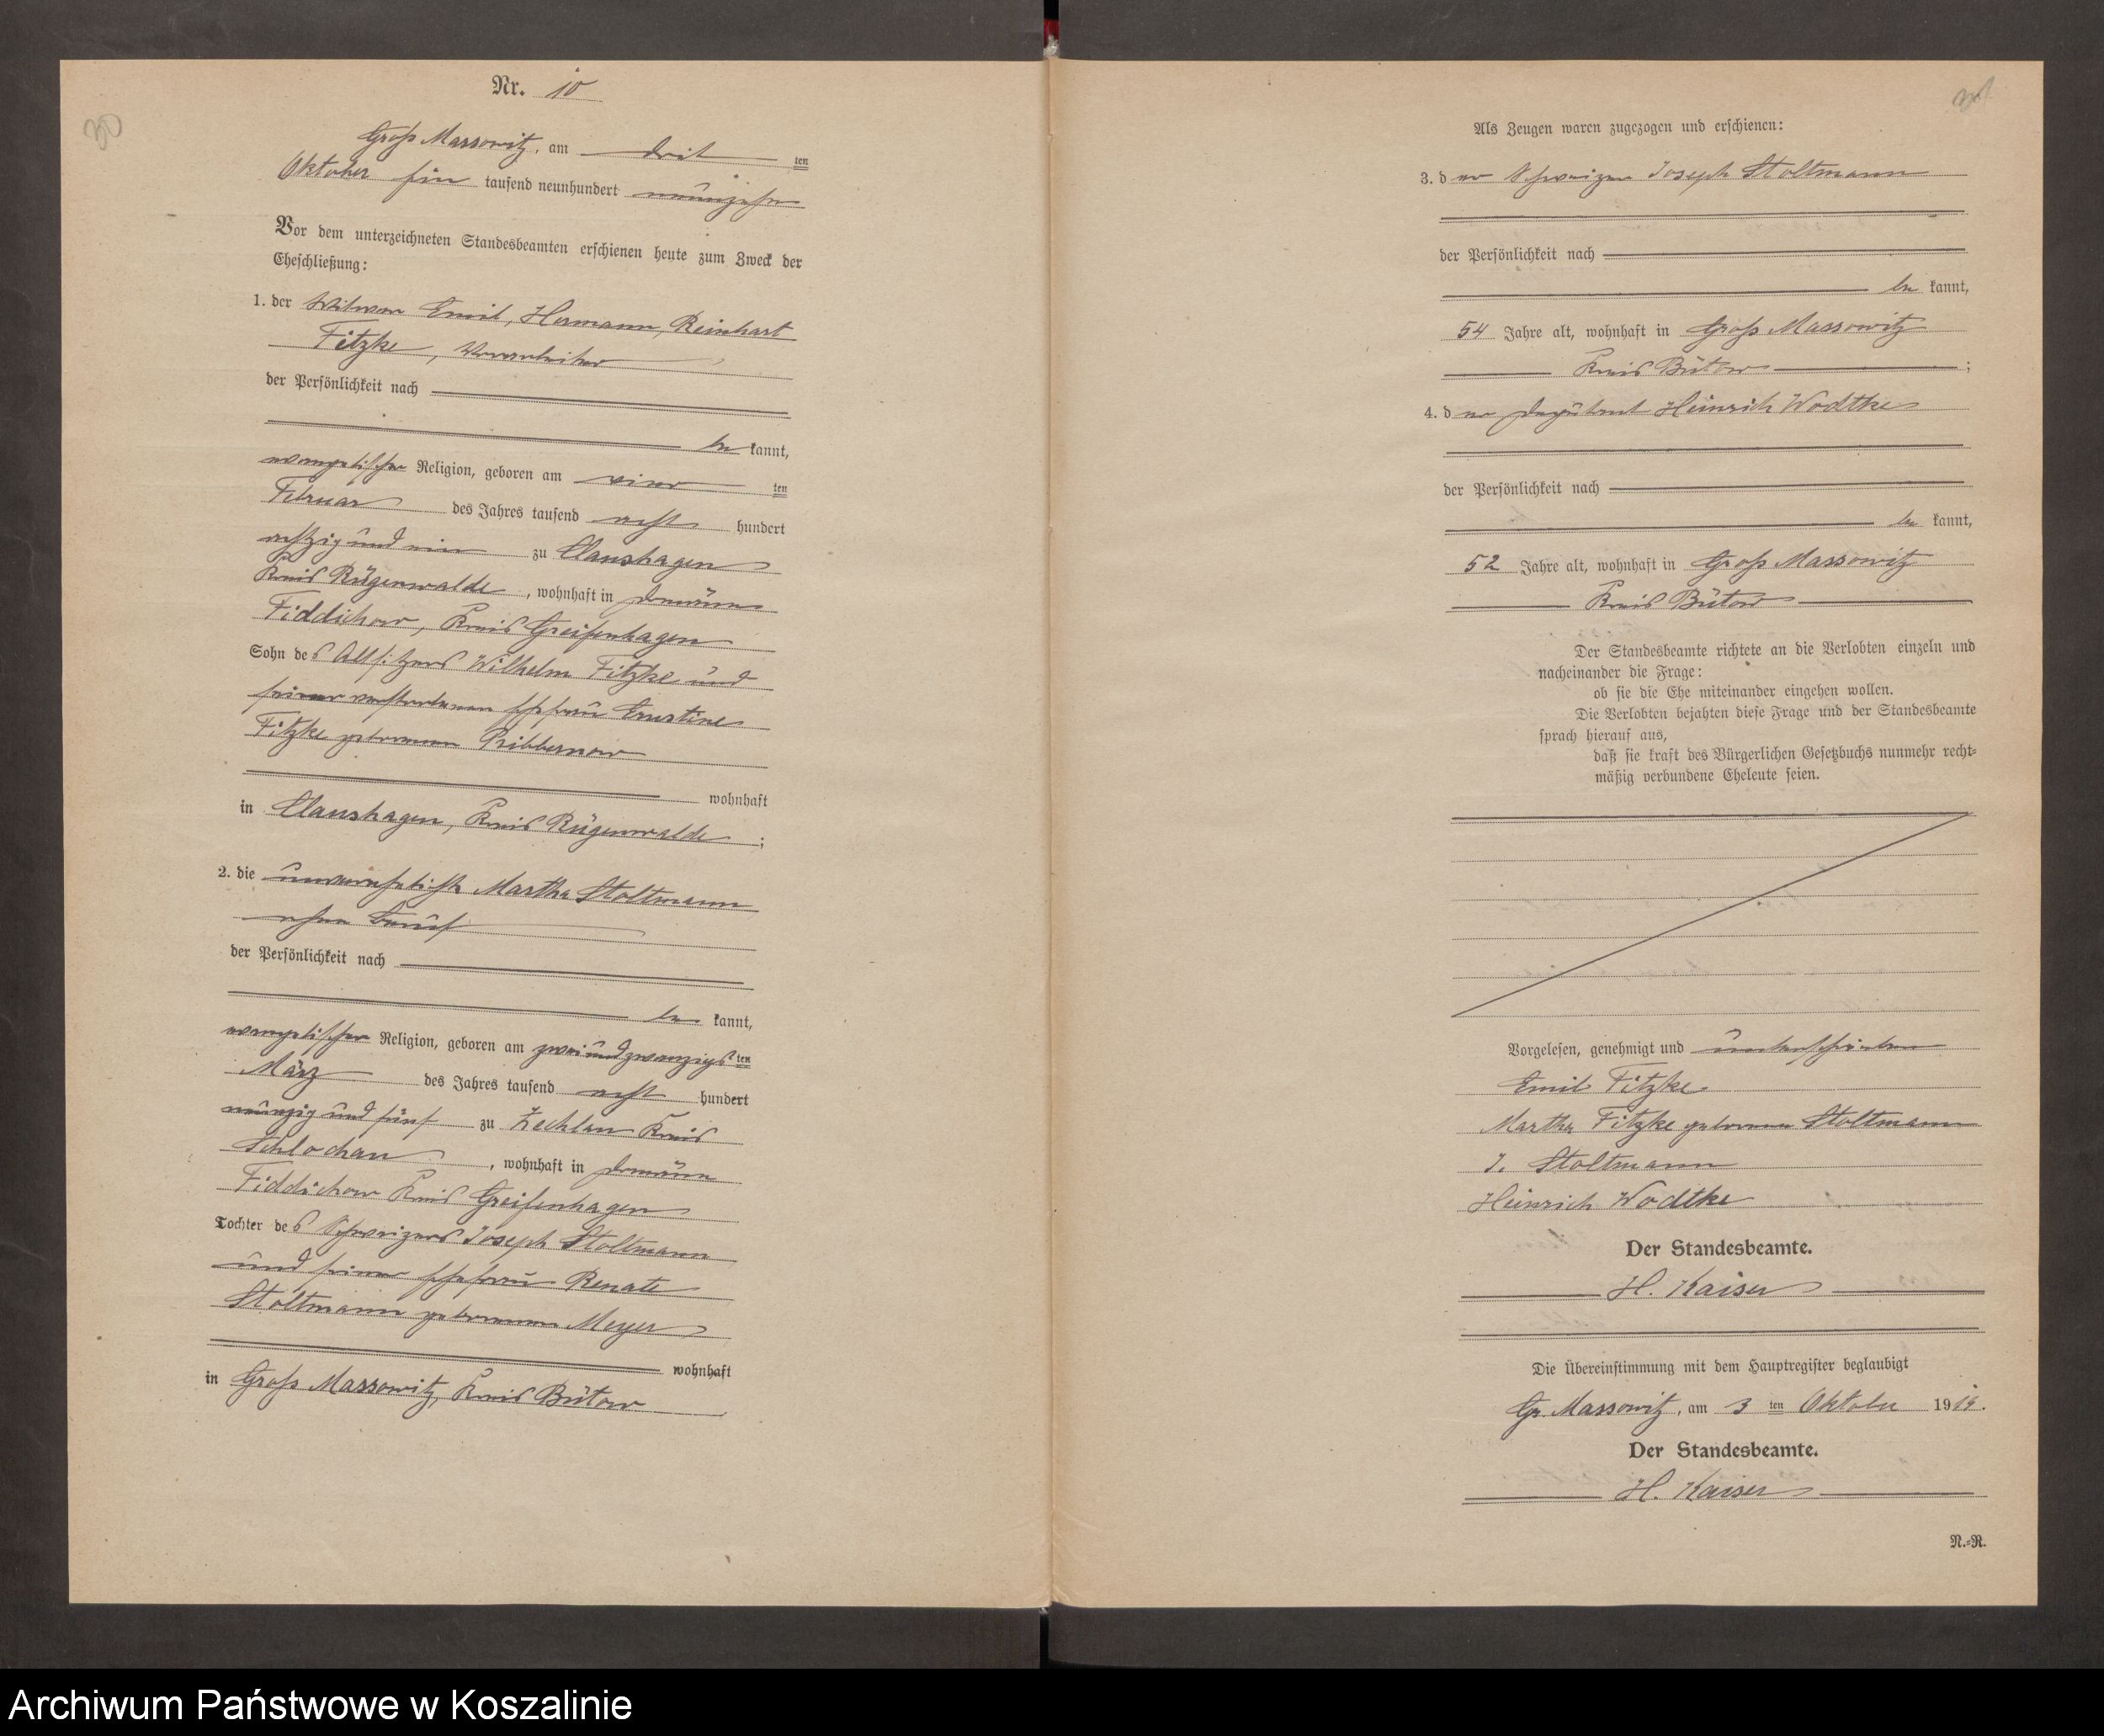 30
Nr. 10
Groß Massowitz, am drit ten
Oktober ein tausend neunhundert neunzehn
Vor dem unterzeichneten Standesbeamten erschienen heute zum Zweck der
Eheschließung:
1. der Witwer Emil, Hermann, Reinhart
Fitzke, Vorarbeiter
der Persönlichkeit nach
be kannt,
evangelischer Religion, geboren am vier ten
Februar des Jahres tausend acht hundert
achtzig und ein zu Claushagen
Kreis Rügenwalde, wohnhaft in Domäne
Fiddichow, Kreis Greifenhagen
Sohn des Altsitzers Wilhelm Fitzke und
seiner verstorbenen Ehefrau Ernstine
Fitzke geborenen Pribbernow
wohnhaft
in Claushagen, Kreis Rügenwalde;
2. die unverehelichte Martha Stoltmann
ohne Beruf
der Persönlichkeit nach
be kannt,
evangelischer Religion, geboren am zweiundzwanzigsten
März des Jahres tausend acht hundert
neunzig und fünf zu Zechlau Kreis
Schlochau, wohnhaft in Domäne
Fiddichow Kreis Greifenhagen
Tochter des Schweizers Joseph Stoltmann
und seiner Ehefrau Renate
Stoltmann geborenen Meyer
wohnhaft
in Groß Massowitz, Kreis Bütow
Als Zeugen waren zugezogen und erschienen:
3. der Schweizer Joseph Stoltmann
der Persönlichkeit nach
be kannt,
54 Jahre alt, wohnhaft in Groß Massowitz
Kreis Bütow;
4. der Deputant Heinrich Wodtke
der Persönlichkeit nach
be kannt,
52 Jahre alt, wohnhaft in Groß Massowitz
Kreis Bütow
Der Standesbeamte richtete an die Verlobten einzeln und
nacheinander die Frage:
ob sie die Ehe miteinander eingehen wollen.
Die Verlobten bejahten diese Frage und der Standesbeamte
sprach hierauf aus,
daß sie kraft des Bürgerlichen Gesetzbuchs nunmehr recht-
mäßig verbundene Eheleute seien.
Vorgelesen, genehmigt und unterschrieben
Emil Fitzke
Martha Fitzke geborene Stoltmann
J. Stoltmann
Heinrich Wodtke
Der Standesbeamte.
H. Kaiser
Die Übereinstimmung mit dem Hauptregister beglaubigt
Gr. Massowitz, am 3 ten Oktober 1919.
Der Standesbeamte.
H. Kaiser
N.-R.
Archiwum Państwowe w Koszalinie